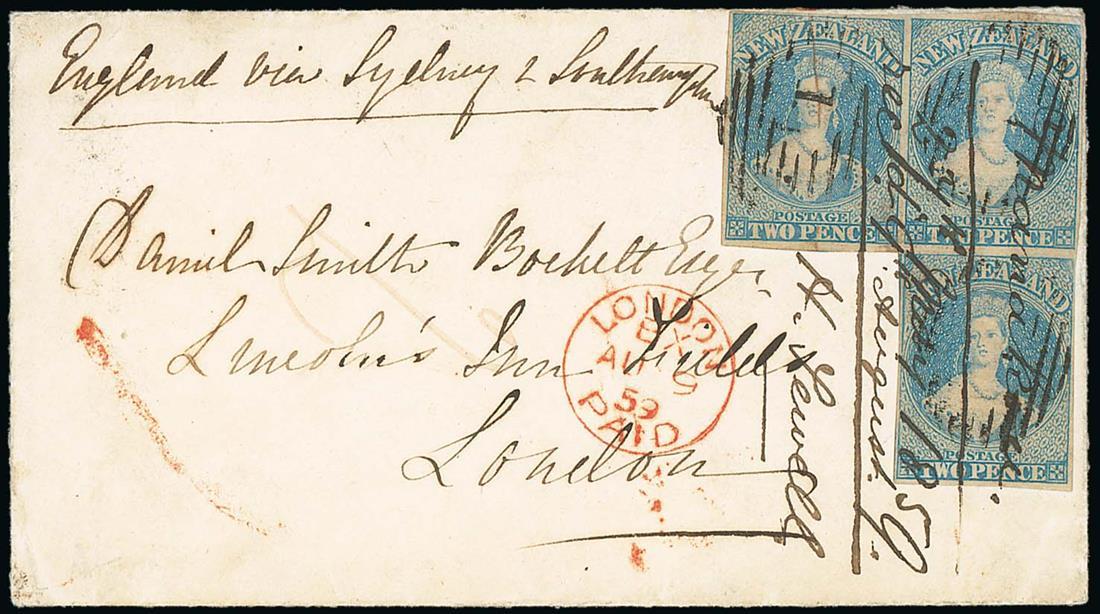 England via Sydney & Southampton
Daniel Smith Bockett Esqr.
Lincoln's Inn Fields
London
LONDON
AU 9
59
PAID
NEW ZEALAND
POSTAGE
TWO PENCE
NEW ZEALAND
POSTAGE
TWO PENCE
ZEALAND
POSTAGE
TWO PENCE
August
1859.
H. Sewell